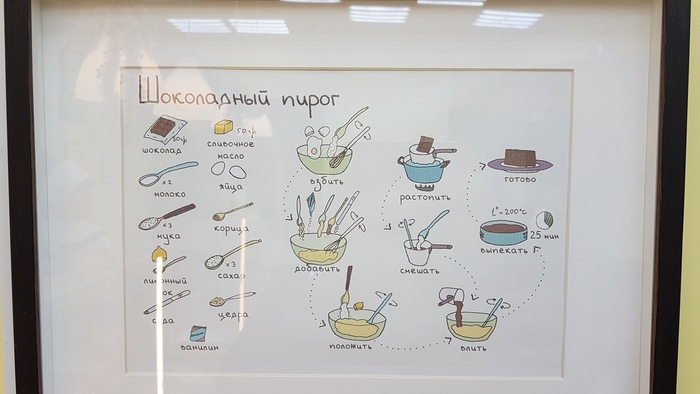 Шоколадный пирог
50гр
шоколад
50гр
сливочное
масло
x2
молоко
яйца
x3
мука
корица
лимонный
сок
x3
сахар
сода
цедра
ванилин
взбить
добавить
положить
растопить
смешать
влить
готово
t°=200°C
25 мин
выпекать